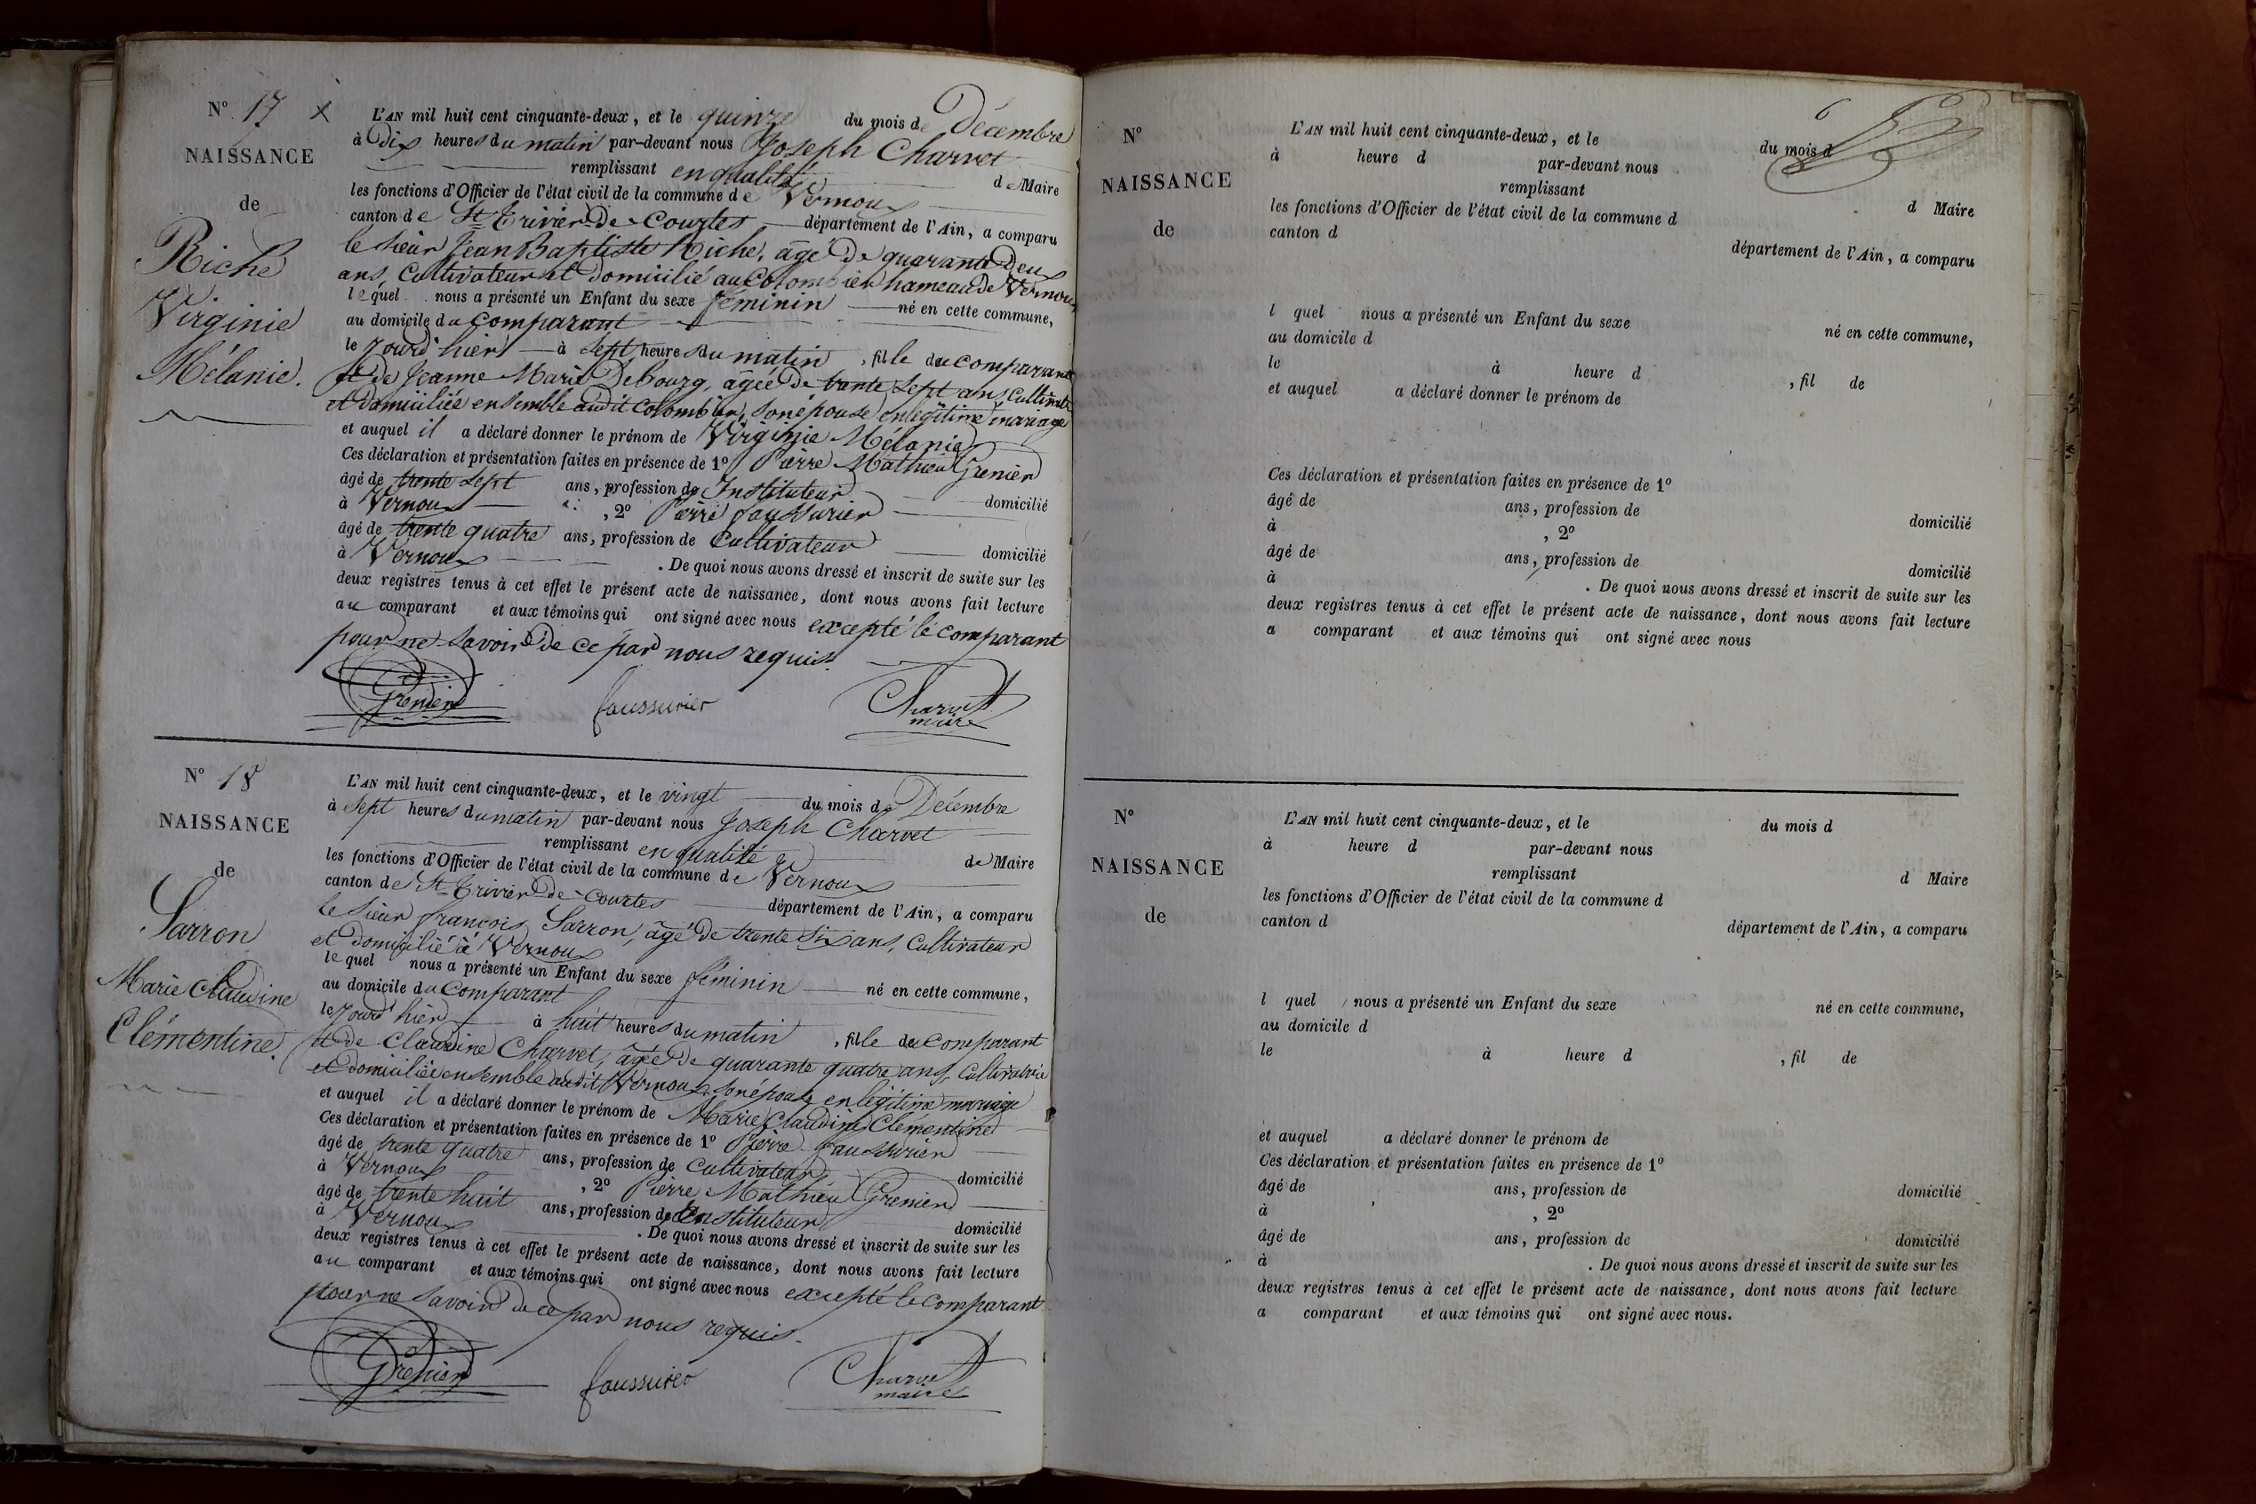 N° 17 X
NAISSANCE
de
Riche
Virginie
Mélanie.
L'AN mil huit cent cinquante-deux, et le quinze du mois de Décembre
à Dix heures du matin par-devant nous Joseph Charvet
remplissant en qualité de Maire
les fonctions d'Officier de l'état civil de la commune de Vernoux
canton de St Trivier-de-Courtes département de l'Ain, a comparu
le sieur Jean Baptiste Riche, âgé de quarante Deux
ans, Cultivateur et domicilié au Colombier hameau de Vernoux
lequel nous a présenté un Enfant du sexe féminin né en cette commune,
au domicile du comparant
le jourd'hier à sept heures du matin, fille du comparant
et de Jeanne Marie Debourg, âgée de trente sept ans, Cultivatrice
et domiciliée ensemble audit Colombier, son épouse en légitime mariage
et auquel il a déclaré donner le prénom de Virginie Mélanie
Ces déclaration et présentation faites en présence de 1° Pierre Mathieu Grenier
âgé de trente sept ans, profession de Instituteur domicilié
à Vernoux, 2° Pierre faussurier
âgé de trente quatre ans, profession de Cultivateur domicilié
à Vernoux. De quoi nous avons dressé et inscrit de suite sur les
deux registres tenus à cet effet le présent acte de naissance, dont nous avons fait lecture
au comparant et aux témoins qui ont signé avec nous excepté le comparant
pour ne savoir de ce par nous requis.
Grenier faussurier Charvet
maire
N° 18
NAISSANCE
de
Sarron
Marie Claudine
Clémentine.
L'AN mil huit cent cinquante-deux, et le vingt du mois de Décembre
à sept heures du matin par-devant nous Joseph Charvet
remplissant en qualité de Maire
les fonctions d'Officier de l'état civil de la commune de Vernoux
canton de St Trivier-de-Courtes département de l'Ain, a comparu
le sieur françois Sarron, âgé de trente Six ans, Cultivateur
et domicilié à Vernoux
lequel nous a présenté un Enfant du sexe féminin né en cette commune,
au domicile du comparant
le jourd'hier à huit heures du matin, fille du comparant
et de Claudine Charvet, âgée de quarante quatre ans, Cultivatrice
et domiciliée ensemble audit Vernoux, son épouse en légitime mariage
et auquel il a déclaré donner le prénom de Marie Claudine Clémentine
Ces déclaration et présentation faites en présence de 1° Pierre faussurier
âgé de trente quatre ans, profession de Cultivateur domicilié
à Vernoux, 2° Pierre Mathieu Grenier
âgé de trente huit ans, profession de Instituteur domicilié
à Vernoux. De quoi nous avons dressé et inscrit de suite sur les
deux registres tenus à cet effet le présent acte de naissance, dont nous avons fait lecture
au comparant et aux témoins qui ont signé avec nous excepté le comparant
pour ne savoir de ce par nous requis.
Grenier faussurier Charvet
maire
6
N°
NAISSANCE
de
L'AN mil huit cent cinquante-deux, et le du mois d
à heure d par-devant nous
remplissant d Maire
les fonctions d'Officier de l'état civil de la commune d
canton d département de l'Ain, a comparu
l quel nous a présenté un Enfant du sexe né en cette commune,
au domicile d
le à heure d, fil de
et auquel a déclaré donner le prénom de
Ces déclaration et présentation faites en présence de 1°
âgé de ans, profession de domicilié
à, 2°
âgé de ans, profession de domicilié
à. De quoi nous avons dressé et inscrit de suite sur les
deux registres tenus à cet effet le présent acte de naissance, dont nous avons fait lecture
a comparant et aux témoins qui ont signé avec nous
N°
NAISSANCE
de
L'AN mil huit cent cinquante-deux, et le du mois d
à heure d par-devant nous
remplissant d Maire
les fonctions d'Officier de l'état civil de la commune d
canton d département de l'Ain, a comparu
l quel nous a présenté un Enfant du sexe né en cette commune,
au domicile d
le à heure d, fil de
et auquel a déclaré donner le prénom de
Ces déclaration et présentation faites en présence de 1°
âgé de ans, profession de domicilié
à, 2°
âgé de ans, profession de domicilié
à. De quoi nous avons dressé et inscrit de suite sur les
deux registres tenus à cet effet le présent acte de naissance, dont nous avons fait lecture
a comparant et aux témoins qui ont signé avec nous.